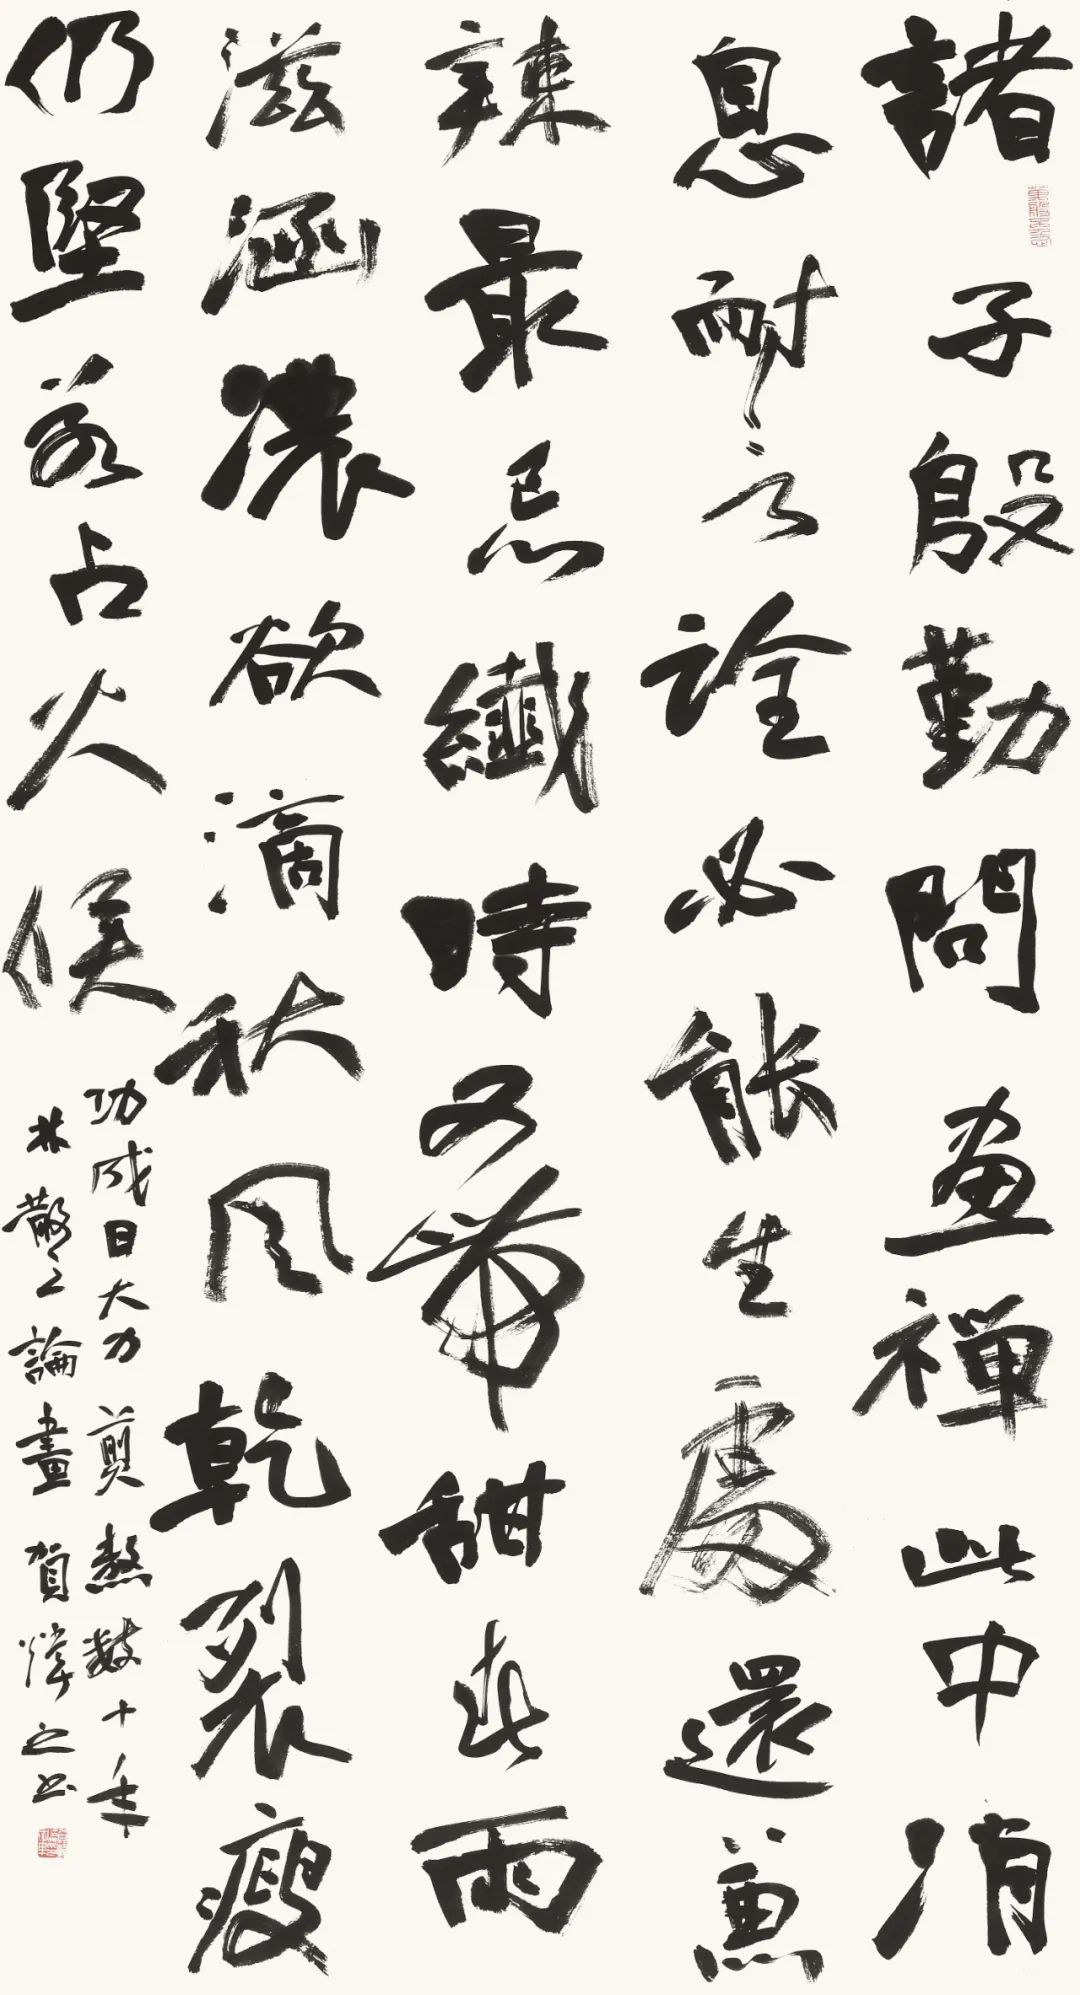 諸子殷勤問画禪此中消
息耐言詮必能生處還兼
辣最忌纖時又帶甜春雨
滋涵濃欲滴秋风乾裂瘦
仍堅若占火候
功成日大力剪熬數十年
林散之論畫賀煒之书